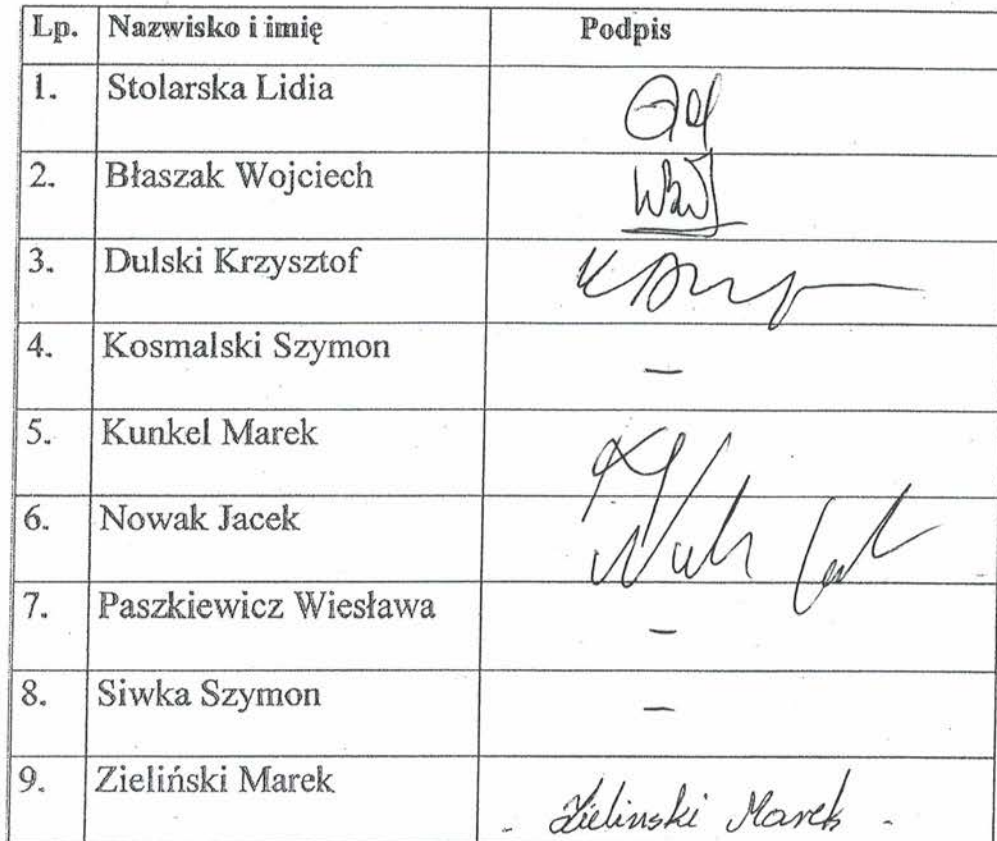 Lp. Nazwisko i imię Podpis
1. Stolarska Lidia
2. Błaszak Wojciech
3. Dulski Krzysztof
4. Kosmalski Szymon –
5. Kunkel Marek
6. Nowak Jacek
7. Paszkiewicz Wiesława –
8. Siwka Szymon –
9. Zieliński Marek Zielinski Marek